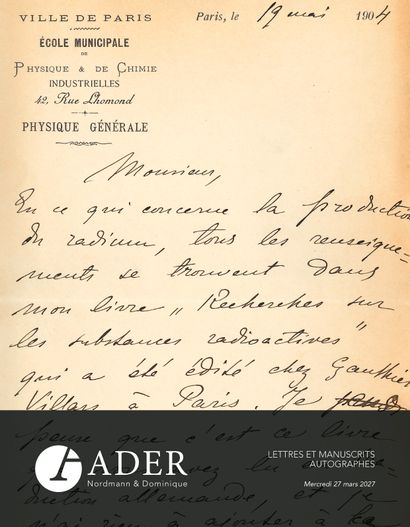 VILLE DE PARIS
ÉCOLE MUNICIPALE
DE
PHYSIQUE & DE CHIMIE
INDUSTRIELLES
42, Rue Lhomond
PHYSIQUE GÉNÉRALE
Paris, le 19 mai 1904
Monsieur,
En ce qui concerne la production
du radium, tous les renseigne-
ments se trouvent dans
mon livre „ Recherches sur
les substances radioactives "
qui a été édité chez Gauthier
Villars à Paris. Je
pense que c'est ce livre
duction allemande, et je
ADER
Nordmann & Dominique
LETTRES ET MANUSCRITS
AUTOGRAPHES
Mercredi 27 mars 2027